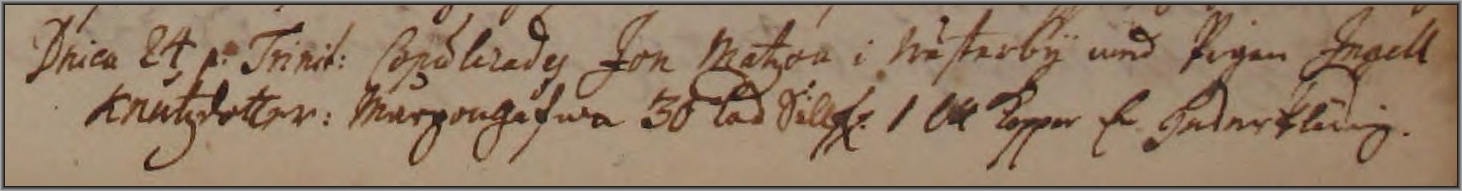 Dnica 24 p: Trinit: Copulerades Jon Matzon i Wästerbÿ med Pigan Ingell
Knutzdotter: Mårgongåfwa 30 lod Silfr: 1 Koppar